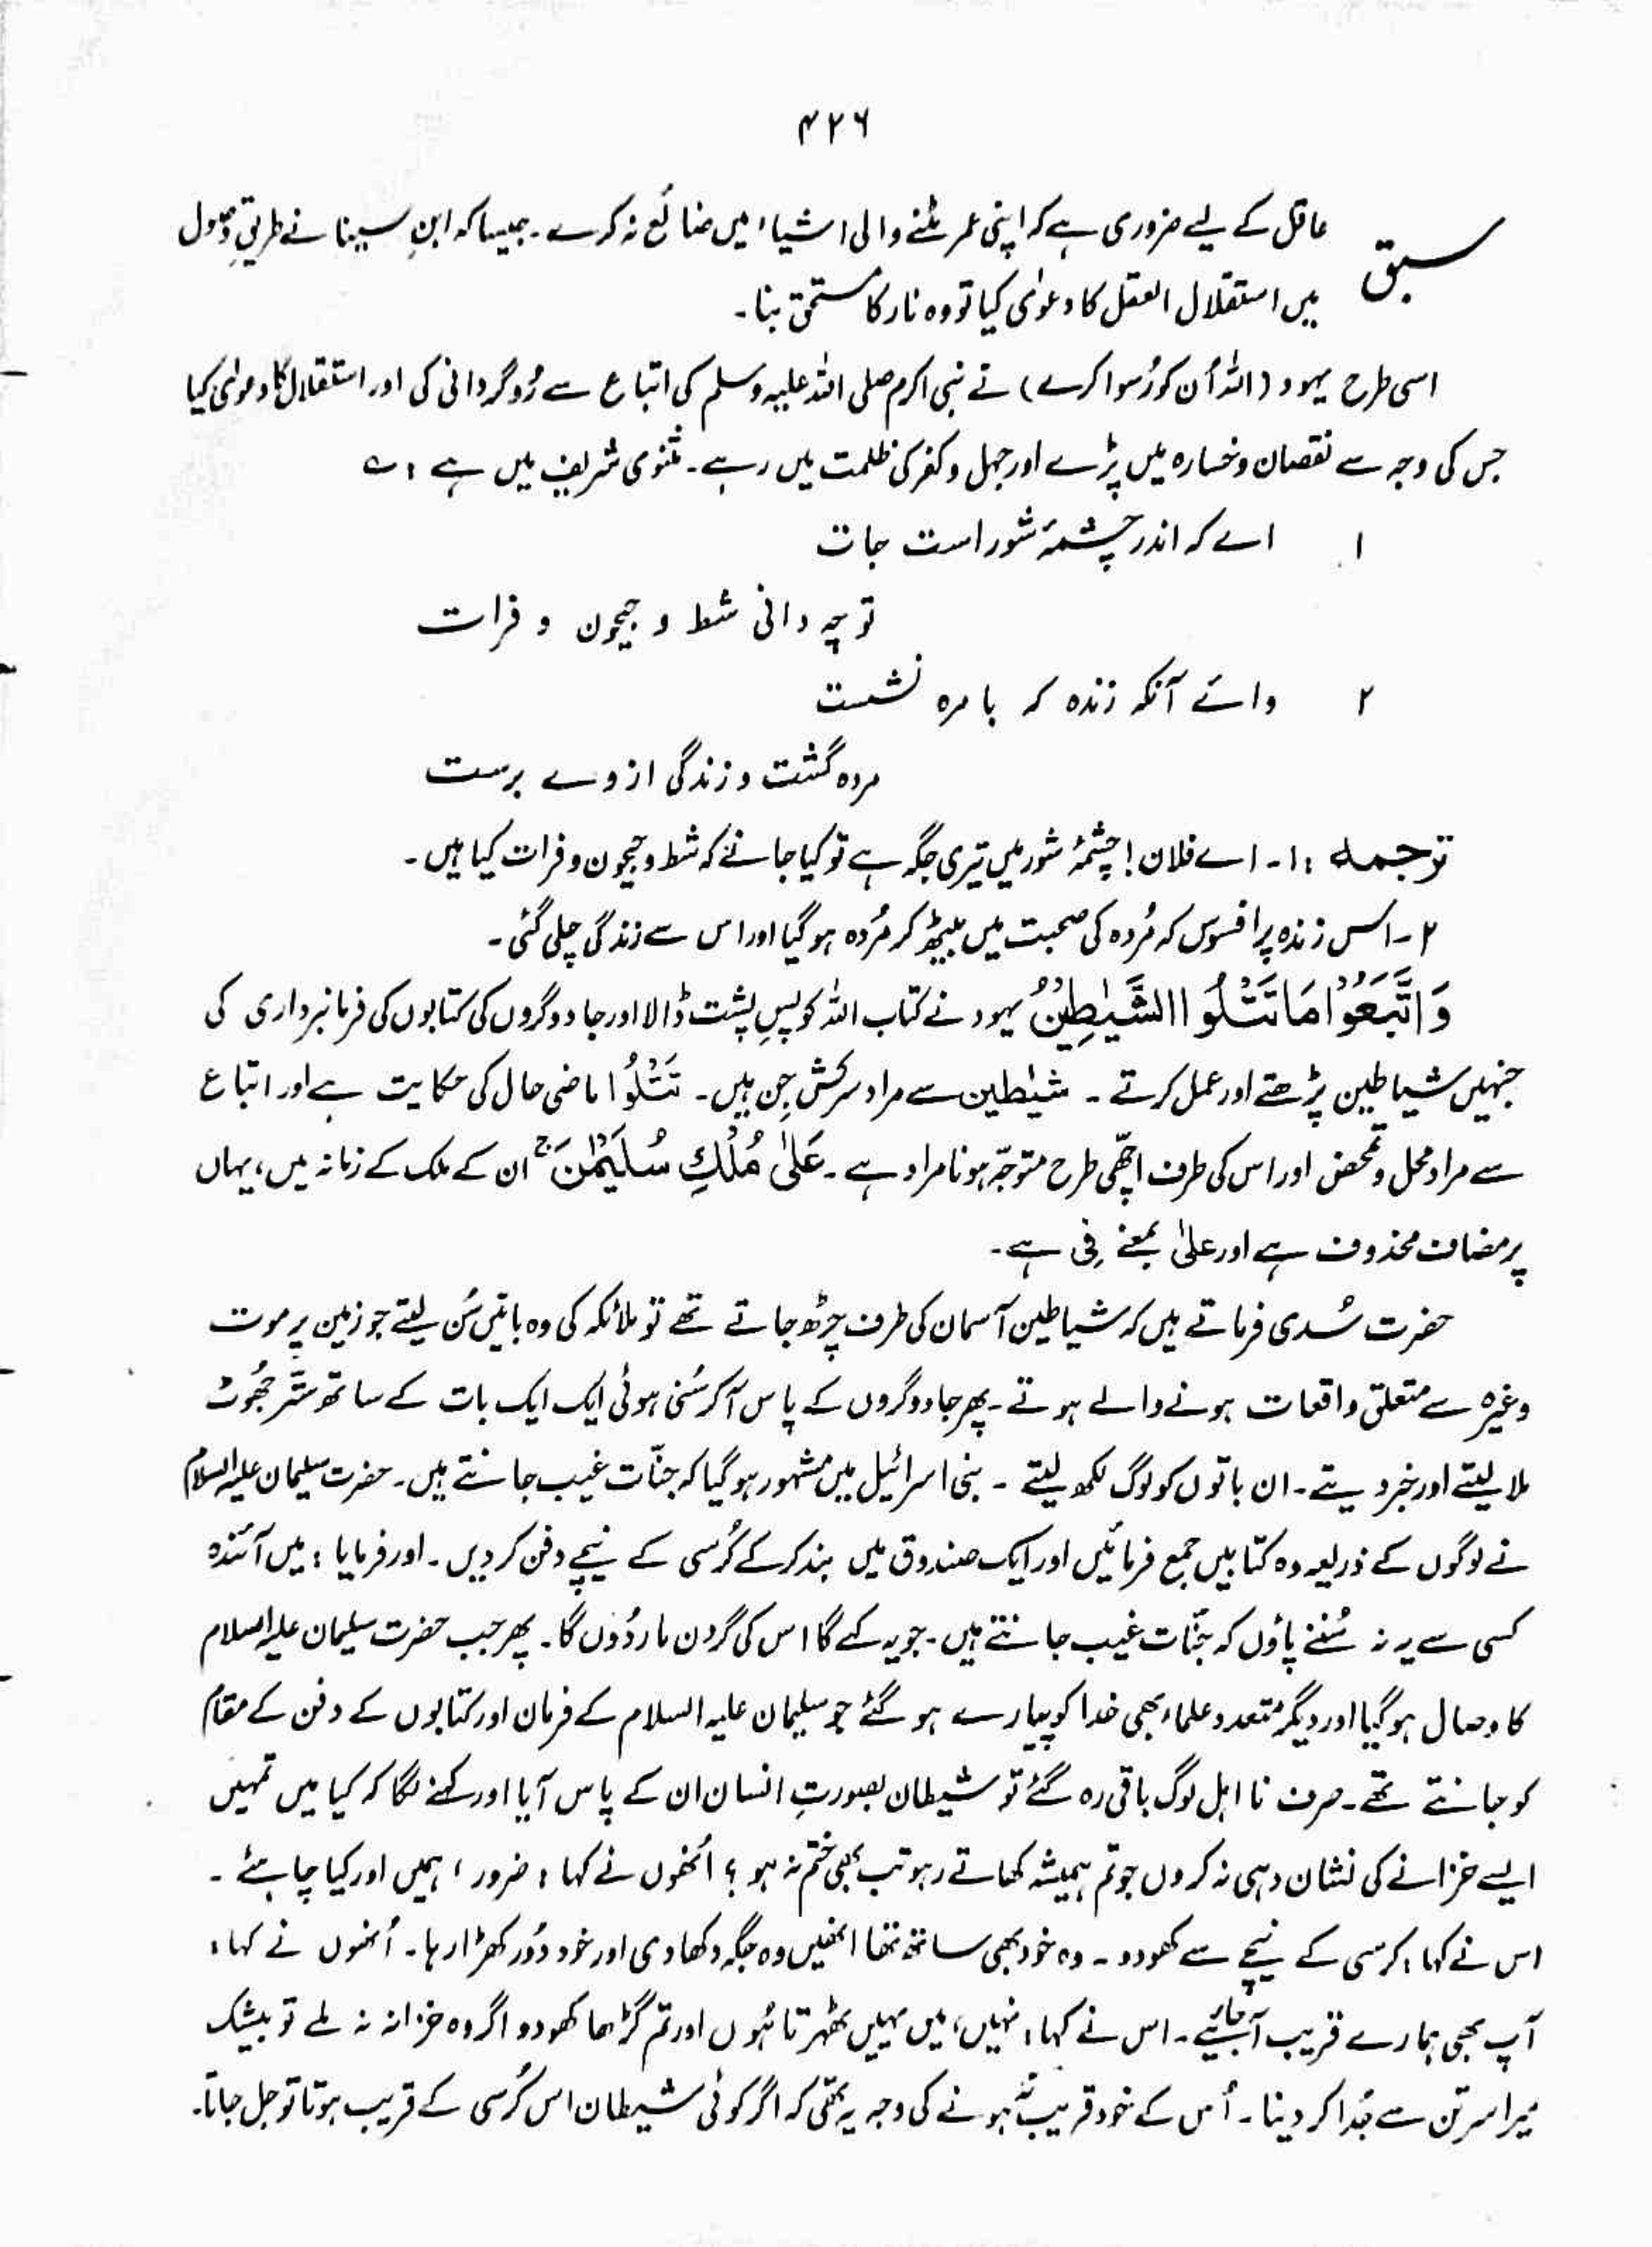 ۴۲۶
سبق عاقل کے لیے ضروری ہے کہ اپنی عمر مٹنے والی اشیاء میں ضائع نہ کرے۔ جیسا کہ ابنِ سینا نے طریقِ وصول
میں استقلال العقل کا دعوٰی کیا تو وہ نار کا مستحق بنا۔
اسی طرح یہود (اللہ اُن کو رُسوا کرے) نے نبی اکرم صلی اللہ علیہ وسلم کی اتباع سے رُوگردانی کی اور استقلال کا دعوٰی کیا
جس کی وجہ سے نقصان و خسارہ میں پڑے اور جہل و کفر کی ظلمت میں رہے۔ مثنوی شریف میں ہے : ؎
۱ اے کہ اندر چشمۂ شور است جات
تو چہ دانی شط و جیحون و فرات
۲ وائے آنکہ زندہ کہ بامرہ نشست
مردہ گشت و زندگی از وے برست
ترجمہ : ۱۔ اے فلان! چشمۂ شور میں تیری جگہ ہے تو کیا جانے کہ شط و جیحون و فرات کیا ہیں۔
۲۔ اس زندہ پر افسوس کہ مُردہ کی صحبت میں بیٹھ کر مُردہ ہو گیا اور اس سے زندگی چلی گئی۔
وَاتَّبَعُوْا مَا تَتْلُوا الشَّيٰطِيْنُ یہود نے کتاب اللہ کو پسِ پشت ڈالا اور جادوگروں کی کتابوں کی فرمانبرداری کی
جنہیں شیاطین پڑھتے اور عمل کرتے۔ شیٰطین سے مراد سرکش جِن ہیں۔ تَتْلُوْا ماضی حال کی حکایت ہے اور اتباع
سے مراد محل و تمحض اور اس کی طرف اچھّی طرح متوجّہ ہونا مراد ہے۔ عَلٰى مُلْكِ سُلَيْمٰنَ ج ان کے ملک کے زمانہ میں، یہاں
پر مضاف محذوف ہے اور علیٰ بمعنے فِی ہے۔
حضرت سُدی فرماتے ہیں کہ شیاطین آسمان کی طرف چڑھ جاتے تھے تو ملائکہ کی وہ باتیں سُن لیتے جو زمین پر موت
وغیرہ سے متعلق واقعات ہونے والے ہوتے۔ پھر جادوگروں کے پاس آ کر سُنی ہوئی ایک ایک بات کے ساتھ ستّر جھُوٹ
ملا لیتے اور خبر دیتے۔ ان باتوں کو لوگ لکھ لیتے۔ بنی اسرائیل میں مشہور ہو گیا کہ جنّات غیب جانتے ہیں۔ حضرت سلیمان علیہ السلام
نے لوگوں کے ذریعہ وہ کتابیں جمع فرمائیں اور ایک صندوق میں بند کر کے کُرسی کے نیچے دفن کر دیں۔ اور فرمایا : میں آئندہ
کسی سے یہ نہ سُننے پاؤں کہ جنّات غیب جانتے ہیں۔ جو یہ کہے گا اس کی گردن مار دُوں گا۔ پھر جب حضرت سلیمان علیہ السلام
کا وصال ہو گیا اور دیگر متعدد علماء بھی خدا کو پیارے ہو گئے جو سلیمان علیہ السلام کے فرمان اور کتابوں کے دفن کے مقام
کو جانتے تھے۔ صرف نا اہل لوگ باقی رہ گئے تو شیطان بصورتِ انسان ان کے پاس آیا اور کہنے لگا کہ کیا میں تمہیں
ایسے خزانے کی نشان دہی نہ کروں جو تم ہمیشہ کھاتے رہو تب بھی ختم نہ ہو؟ اُنھوں نے کہا : ضرور، ہمیں اور کیا چاہئے۔
اس نے کہا : کرسی کے نیچے سے کھودو۔ وہ خود بھی ساتھ تھا انھیں وہ جگہ دکھا دی اور خود دُور کھڑا رہا۔ اُنھوں نے کہا :
آپ بھی ہمارے قریب آجائیے۔ اس نے کہا : نہیں، میں یہیں ٹھہرتا ہُوں اور تم گڑھا کھودو اگر وہ خزانہ نہ ملے تو بیشک
میرا سر تن سے جُدا کر دینا۔ اُس کے خود قریب نہ ہونے کی وجہ یہ تھی کہ اگر کوئی شیطان اس کُرسی کے قریب ہوتا تو جل جاتا۔